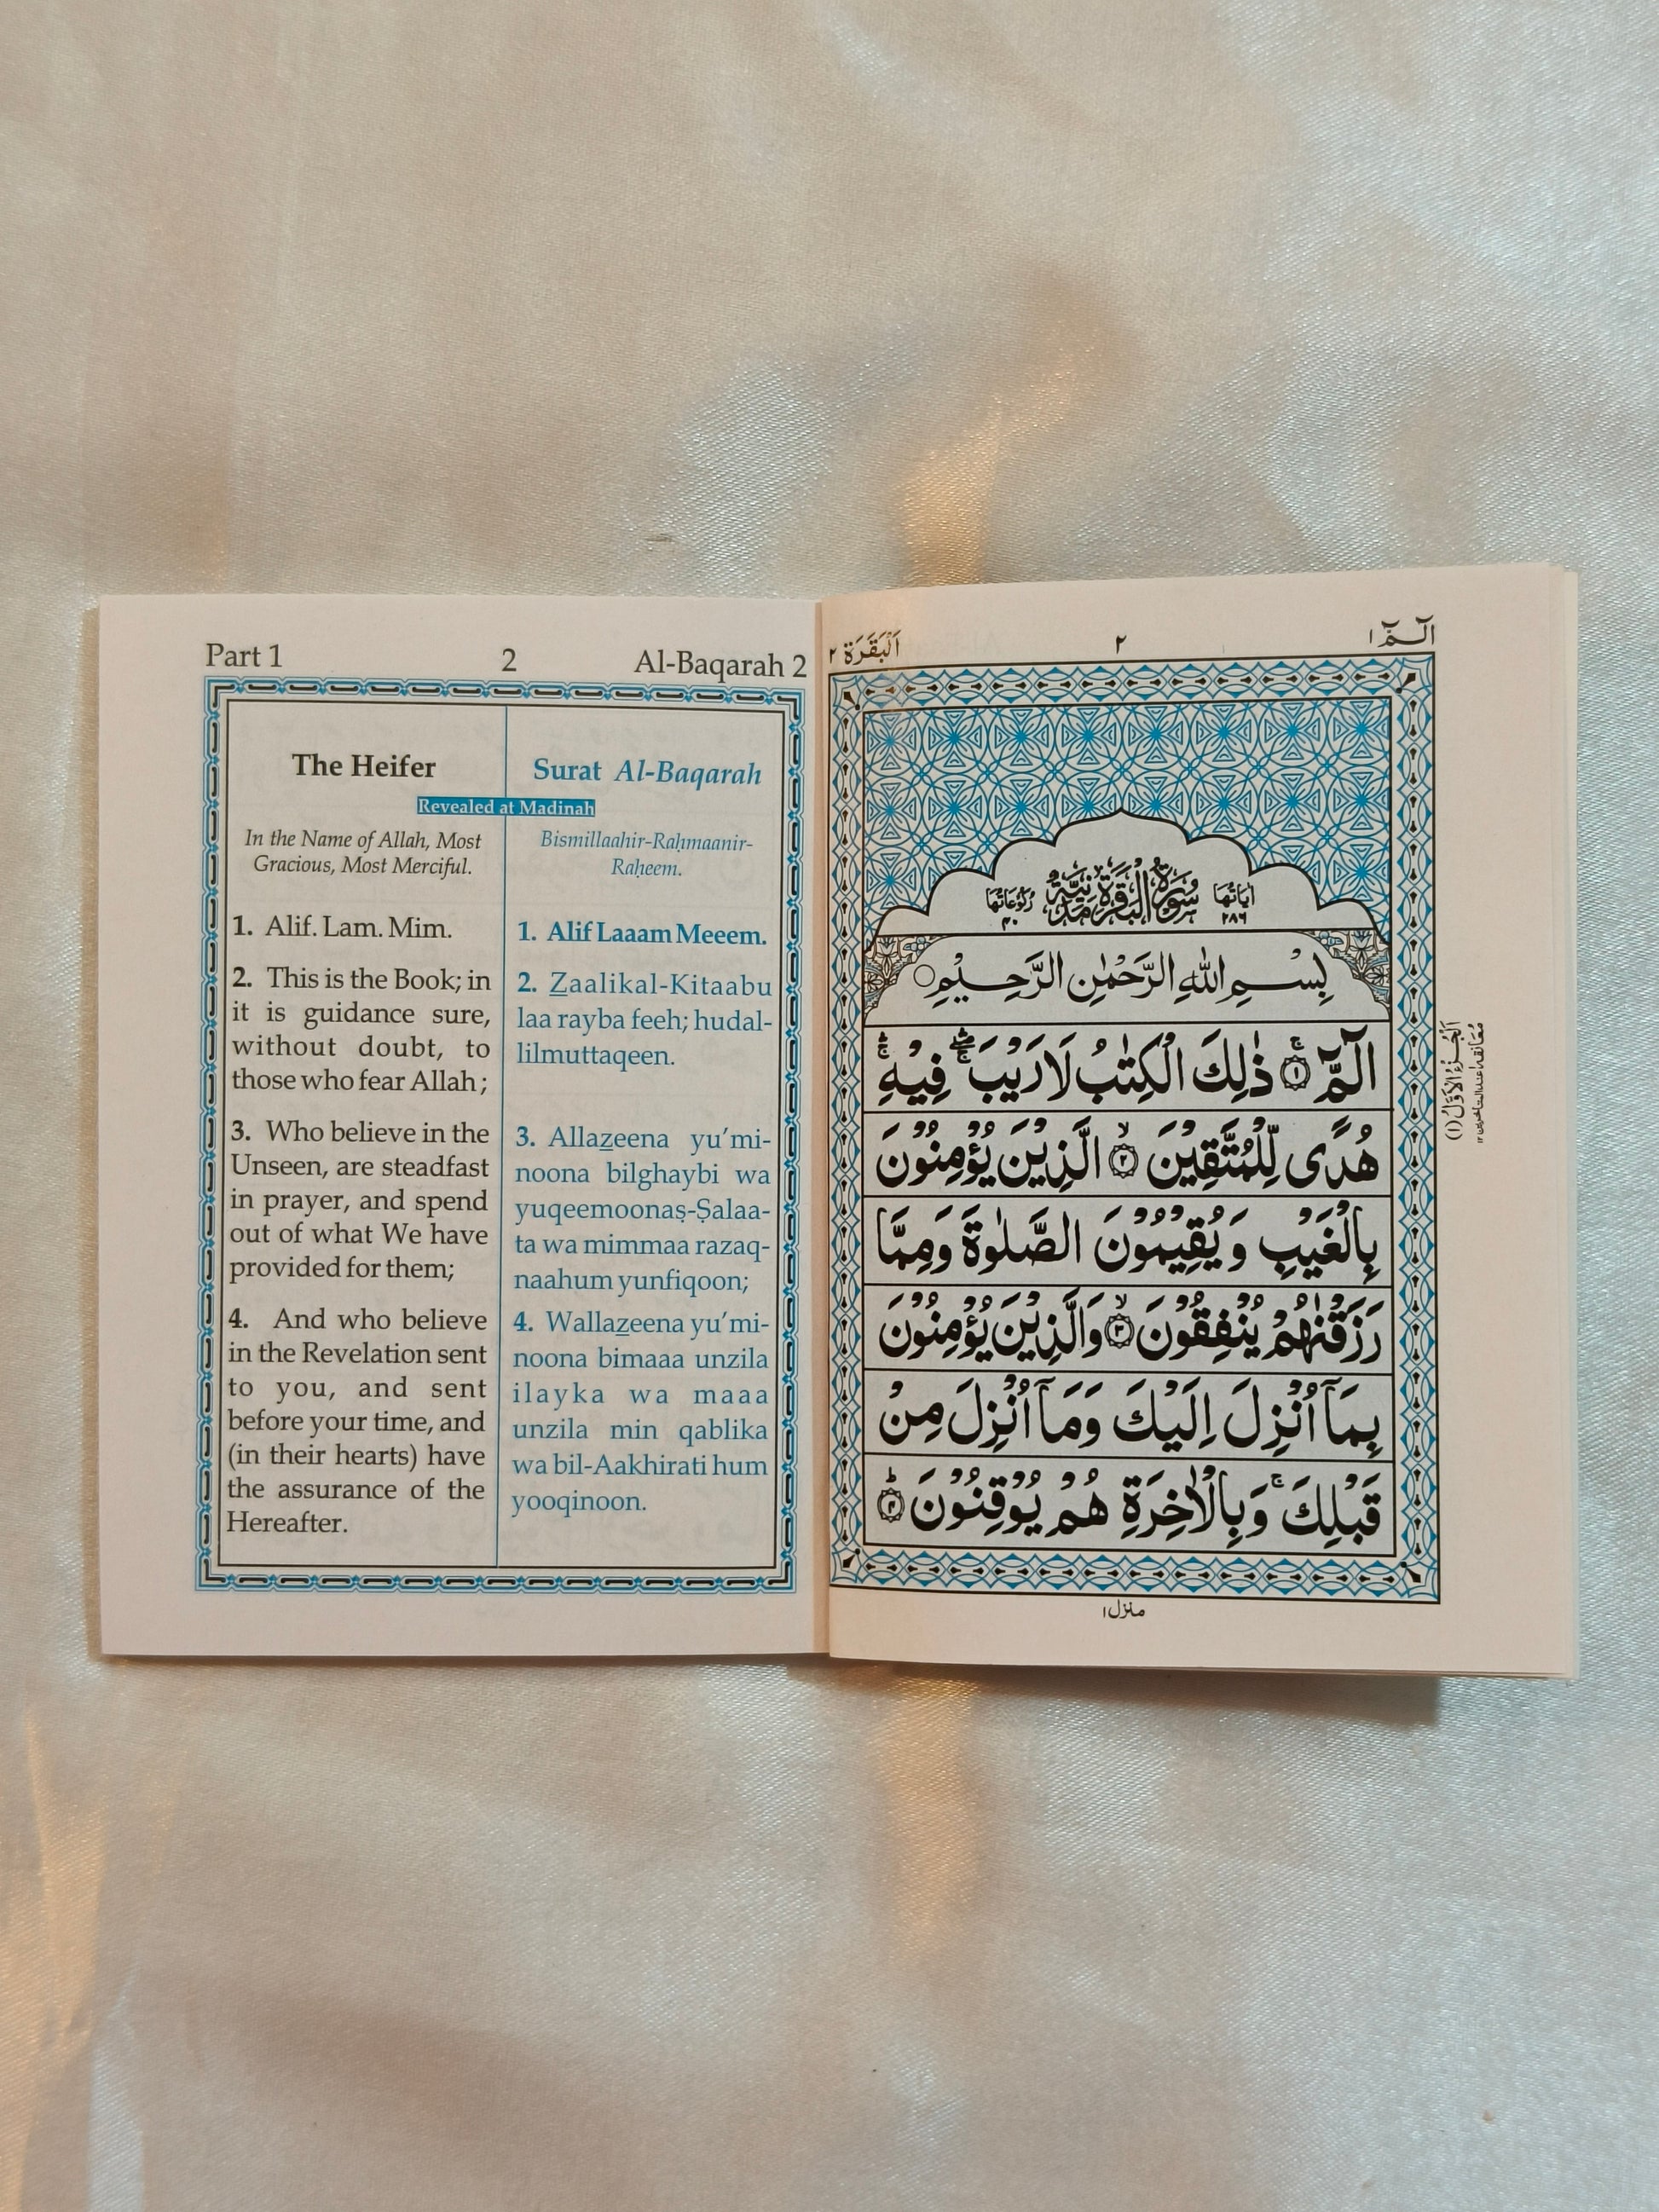 Part 1 2 Al-Baqarah 2
The Heifer
Surat Al-Baqarah
Revealed at Madinah
In the Name of Allah, Most
Gracious, Most Merciful.
1. Alif. Lam. Mim.
2. This is the Book; in
it is guidance sure,
without doubt, to
those who fear Allah ;
3. Who believe in the
Unseen, are steadfast
in prayer, and spend
out of what We have
provided for them;
4. And who believe
in the Revelation sent
to you, and sent
before your time, and
(in their hearts) have
the assurance of the
Hereafter.
Bismillaahir-Raḥmaanir-
Raḥeem.
1. Alif Laaam Meeem.
2. Z̲aalikal-Kitaabu
laa rayba feeh; hudal-
lilmuttaqeen.
3. Allaz̲eena yu’mi-
noona bilghaybi wa
yuqeemoonaṣ-Ṣalaa-
ta wa mimmaa razaq-
naahum yunfiqoon;
4. Wallaz̲eena yu’mi-
noona bimaaa unzila
ilayka wa maaa
unzila min qablika
wa bil-Aakhirati hum
yooqinoon.
الٓـمّٓ ١ ٢ اَلْبَقَرَة ٢
اٰيَاتُهَا ٢٨٦ سُوْرَةُ الْبَقَرَةِ مَدَنِيَّةٌ رُكُوْعَاتُهَا ٤٠
بِسْــمِ اللّٰهِ الرَّحْمٰنِ الرَّحِــيْمِ
الٓمّٓ ۚ‏ ١ ذٰلِكَ الْكِتٰبُ لَا رَيْبَ ۛۖ فِيْهِ ۛۚ
هُدًى لِّلْمُتَّقِيْنَ ۙ ٢ الَّذِيْنَ يُؤْمِنُوْنَ
بِالْغَيْبِ وَ يُقِيْمُوْنَ الصَّلٰوةَ وَمِمَّا
رَزَقْنٰهُمْ يُنْفِقُوْنَ ۙ ٣ وَالَّذِيْنَ يُؤْمِنُوْنَ
بِمَآ اُنْزِلَ اِلَيْكَ وَمَآ اُنْزِلَ مِنْ
قَبْلِكَ ۚ وَبِالْاٰخِرَةِ هُمْ يُوْقِنُوْنَ ؕ ٤
منزل ١
اَلْجُزْءُ الْاَوَّلُ (١)